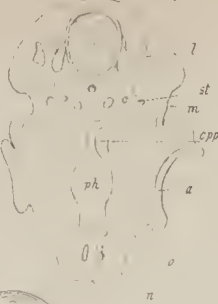 l
st
m
cpp
ph
a
o
n